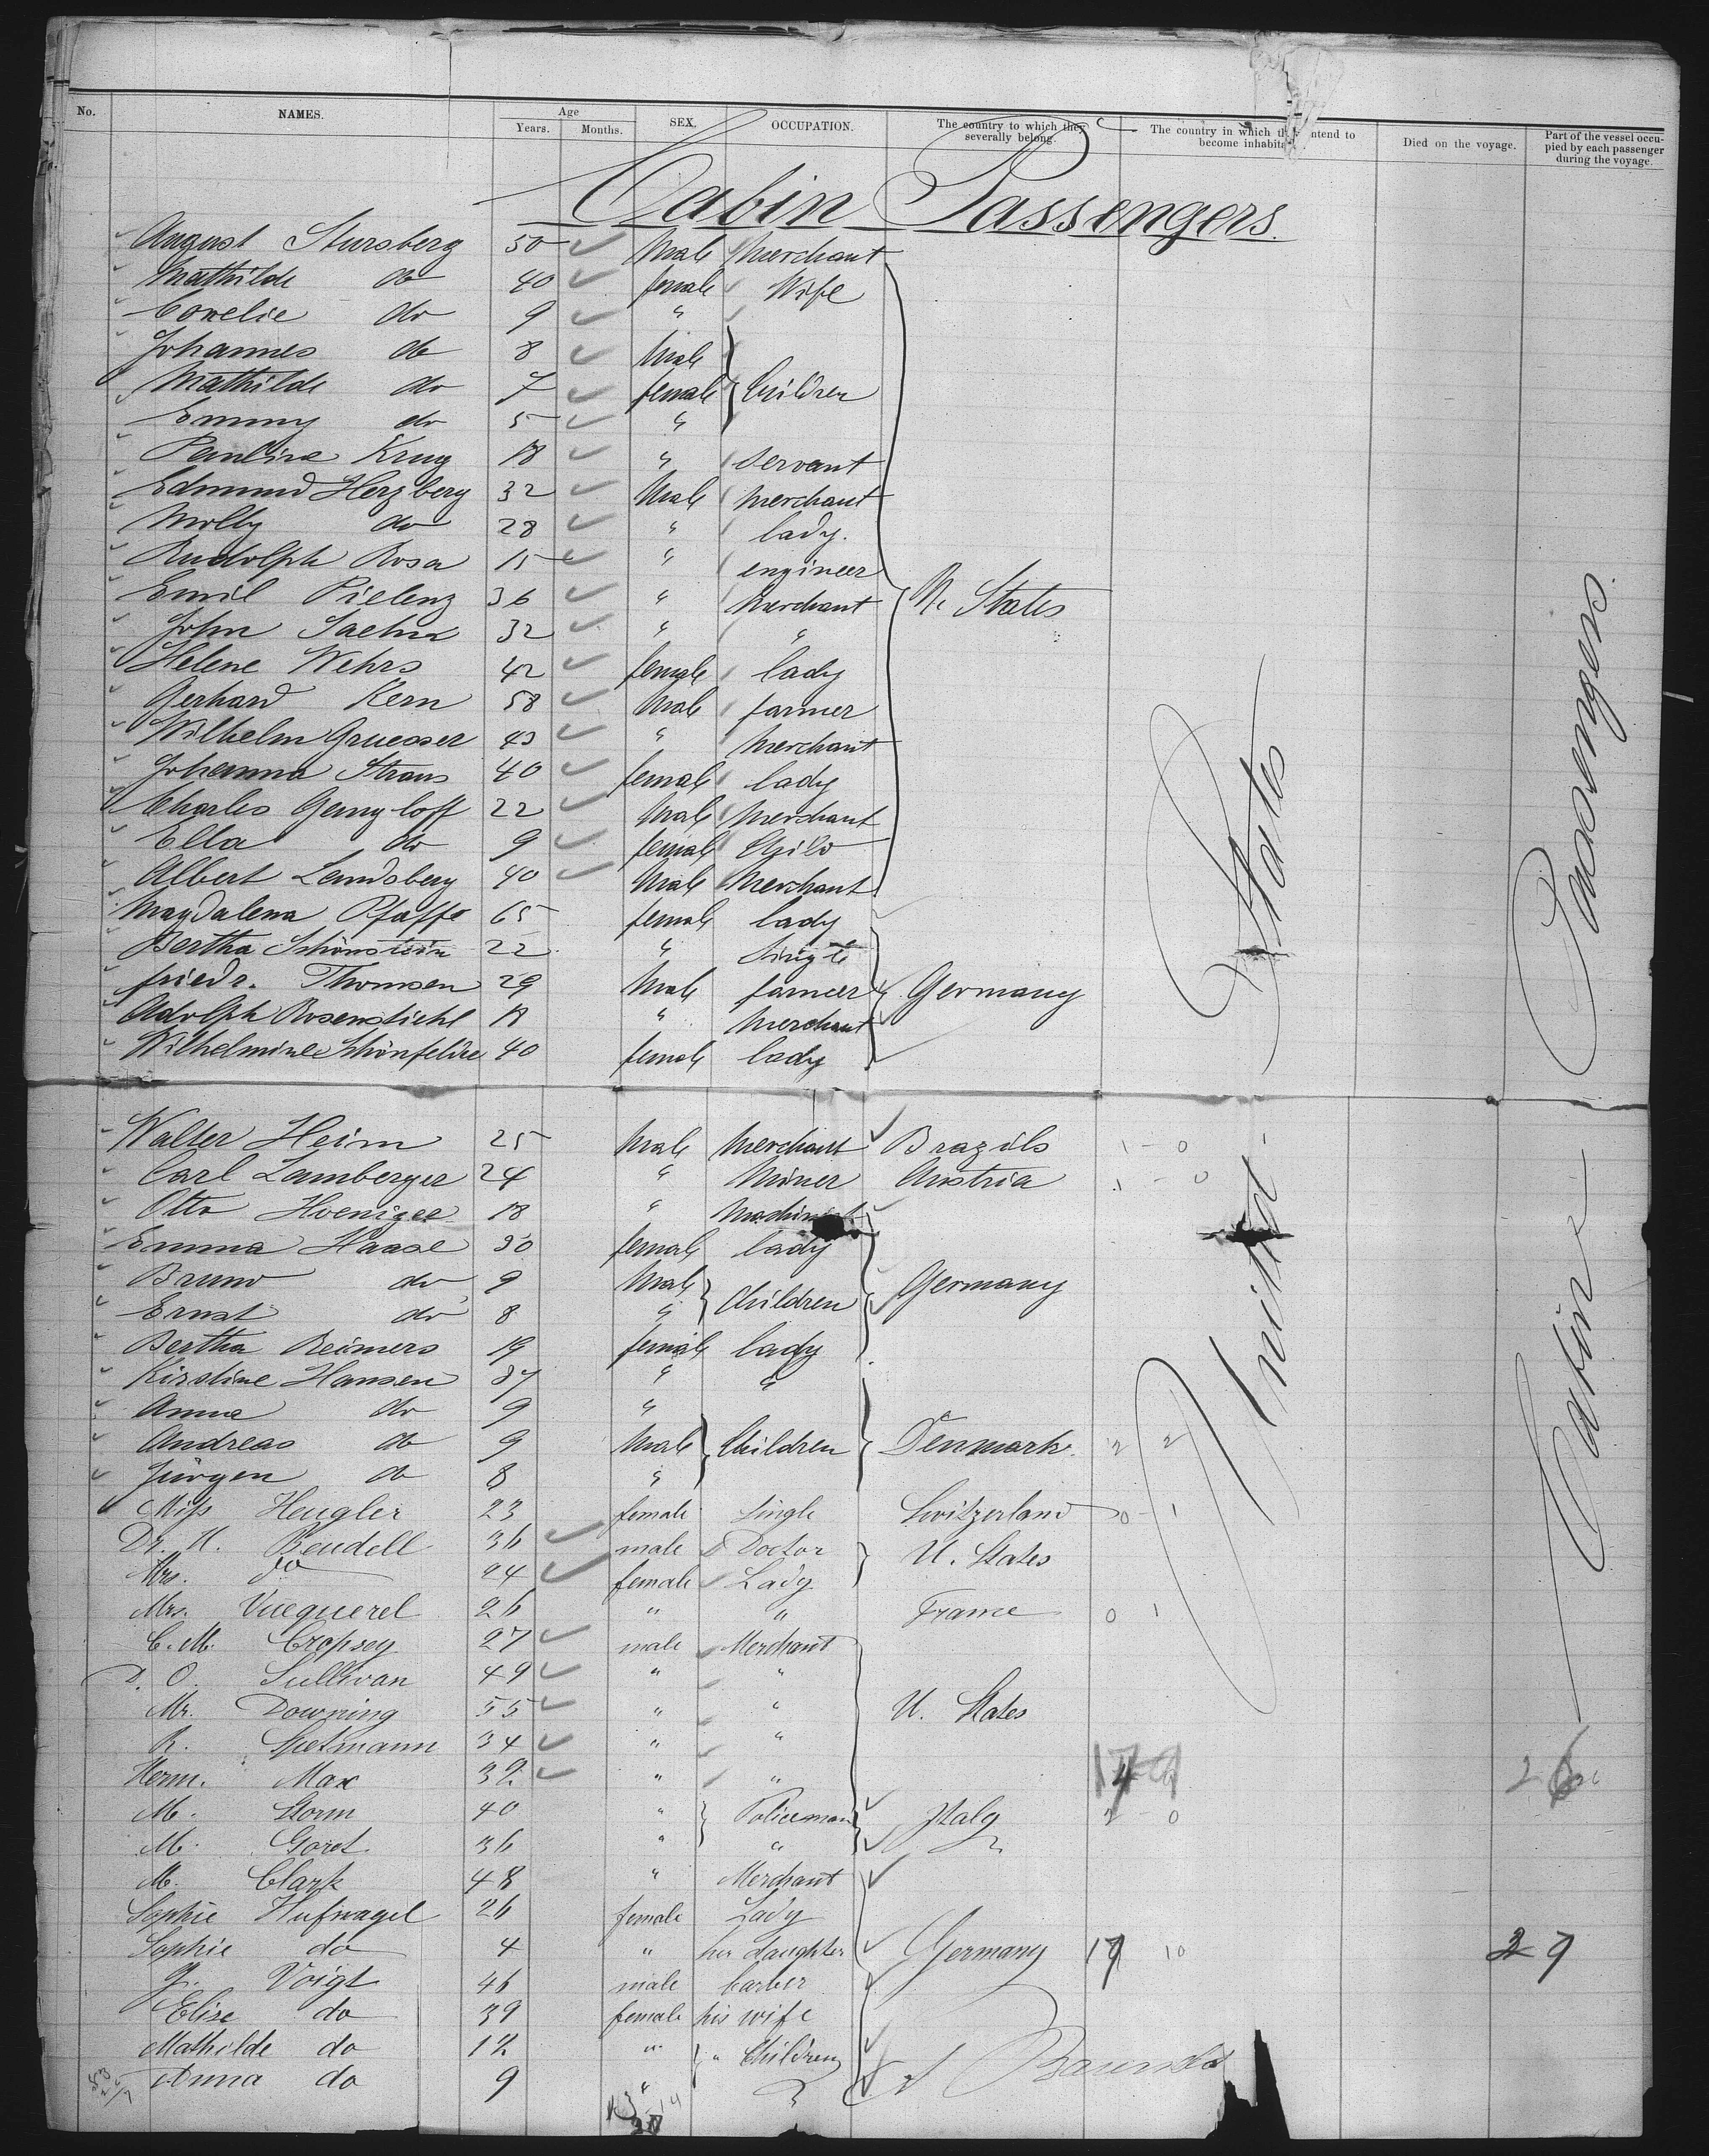 No. NAMES. Age Years. Months. SEX. OCCUPATION. The country to which they severally belong. The country in which they intend to become inhabita Died on the voyage. Part of the vessel occupied by each passenger during the voyage.
Cabin Passengers.
August Stursberg 50 Male Merchant
Mathilde do 40 female Wife
Cornelie do 9 "
Johannes do 8 Male
Mathilde do 7 female Children
Emmy do 5 "
Pauline Krug 18 " Servant
Edmund Herzberg 32 Male Merchant
Molly do 28 " lady.
Rudolph Rosa 15 " engineer
Emil Pielenz 36 " Merchant U. States
John Saehn 32 " "
Helene Wehrs 42 female lady
Gerhard Kern 58 Male farmer
Wilhelm Gruesser 43 " Merchant
Johanna Straus 40 female lady
Charles Gangloff 22 Male Merchant
Ella do 9 female Child
Albert Landsberg 40 Male Merchant
Magdalena Pfaffe 65 female lady
Bertha Schönstein 22 " Single
friedr. Thomsen 29 Male farmer Germany
Adolph Rosenstiehl 18 " Merchant
Wilhelmine Schönfeldre 40 female lady
Walter Heim 25 Male Merchant Brazils 1 - 0
Carl Lamberger 24 " Miner Austria 1 - 0
Otto Hoeniger 18 " Machinist
Emma Haase 30 female lady
Bruno do 9 Male Children Germany
Ernst do 8 "
Bertha Reimers 19 female lady
Kirstine Hansen 37 " "
Anna do 9 "
Andreas do 9 Male Children Denmark 2 2
Jürgen do 8 "
Miss Hengler 23 female Single Switzerland 0 - 1
Dr. H. Bendell 36 male Doctor U. States
Mrs. do 24 female Lady
Mrs. Vuequerel 26 " " France 0 1
C. M. Cropsey 27 male Merchant
D. O. Sullivan 49 " "
Mr. Downing 55 " " U. States
R. Spetmann 34 " "
Herm. Max 32 " "
M. Storm 40 " Policeman Italy 2 0
M. Goret 36 " "
M. Clark 48 " Merchant
Sophie Hufnagel 26 female Lady
Sophie do 4 " her daughter Germany 17 10
J. Voigt 46 male barber
Elise do 39 female his wife
Mathilde do 12 " Children
Anna do 9 "
United States
Cabin Passengers.